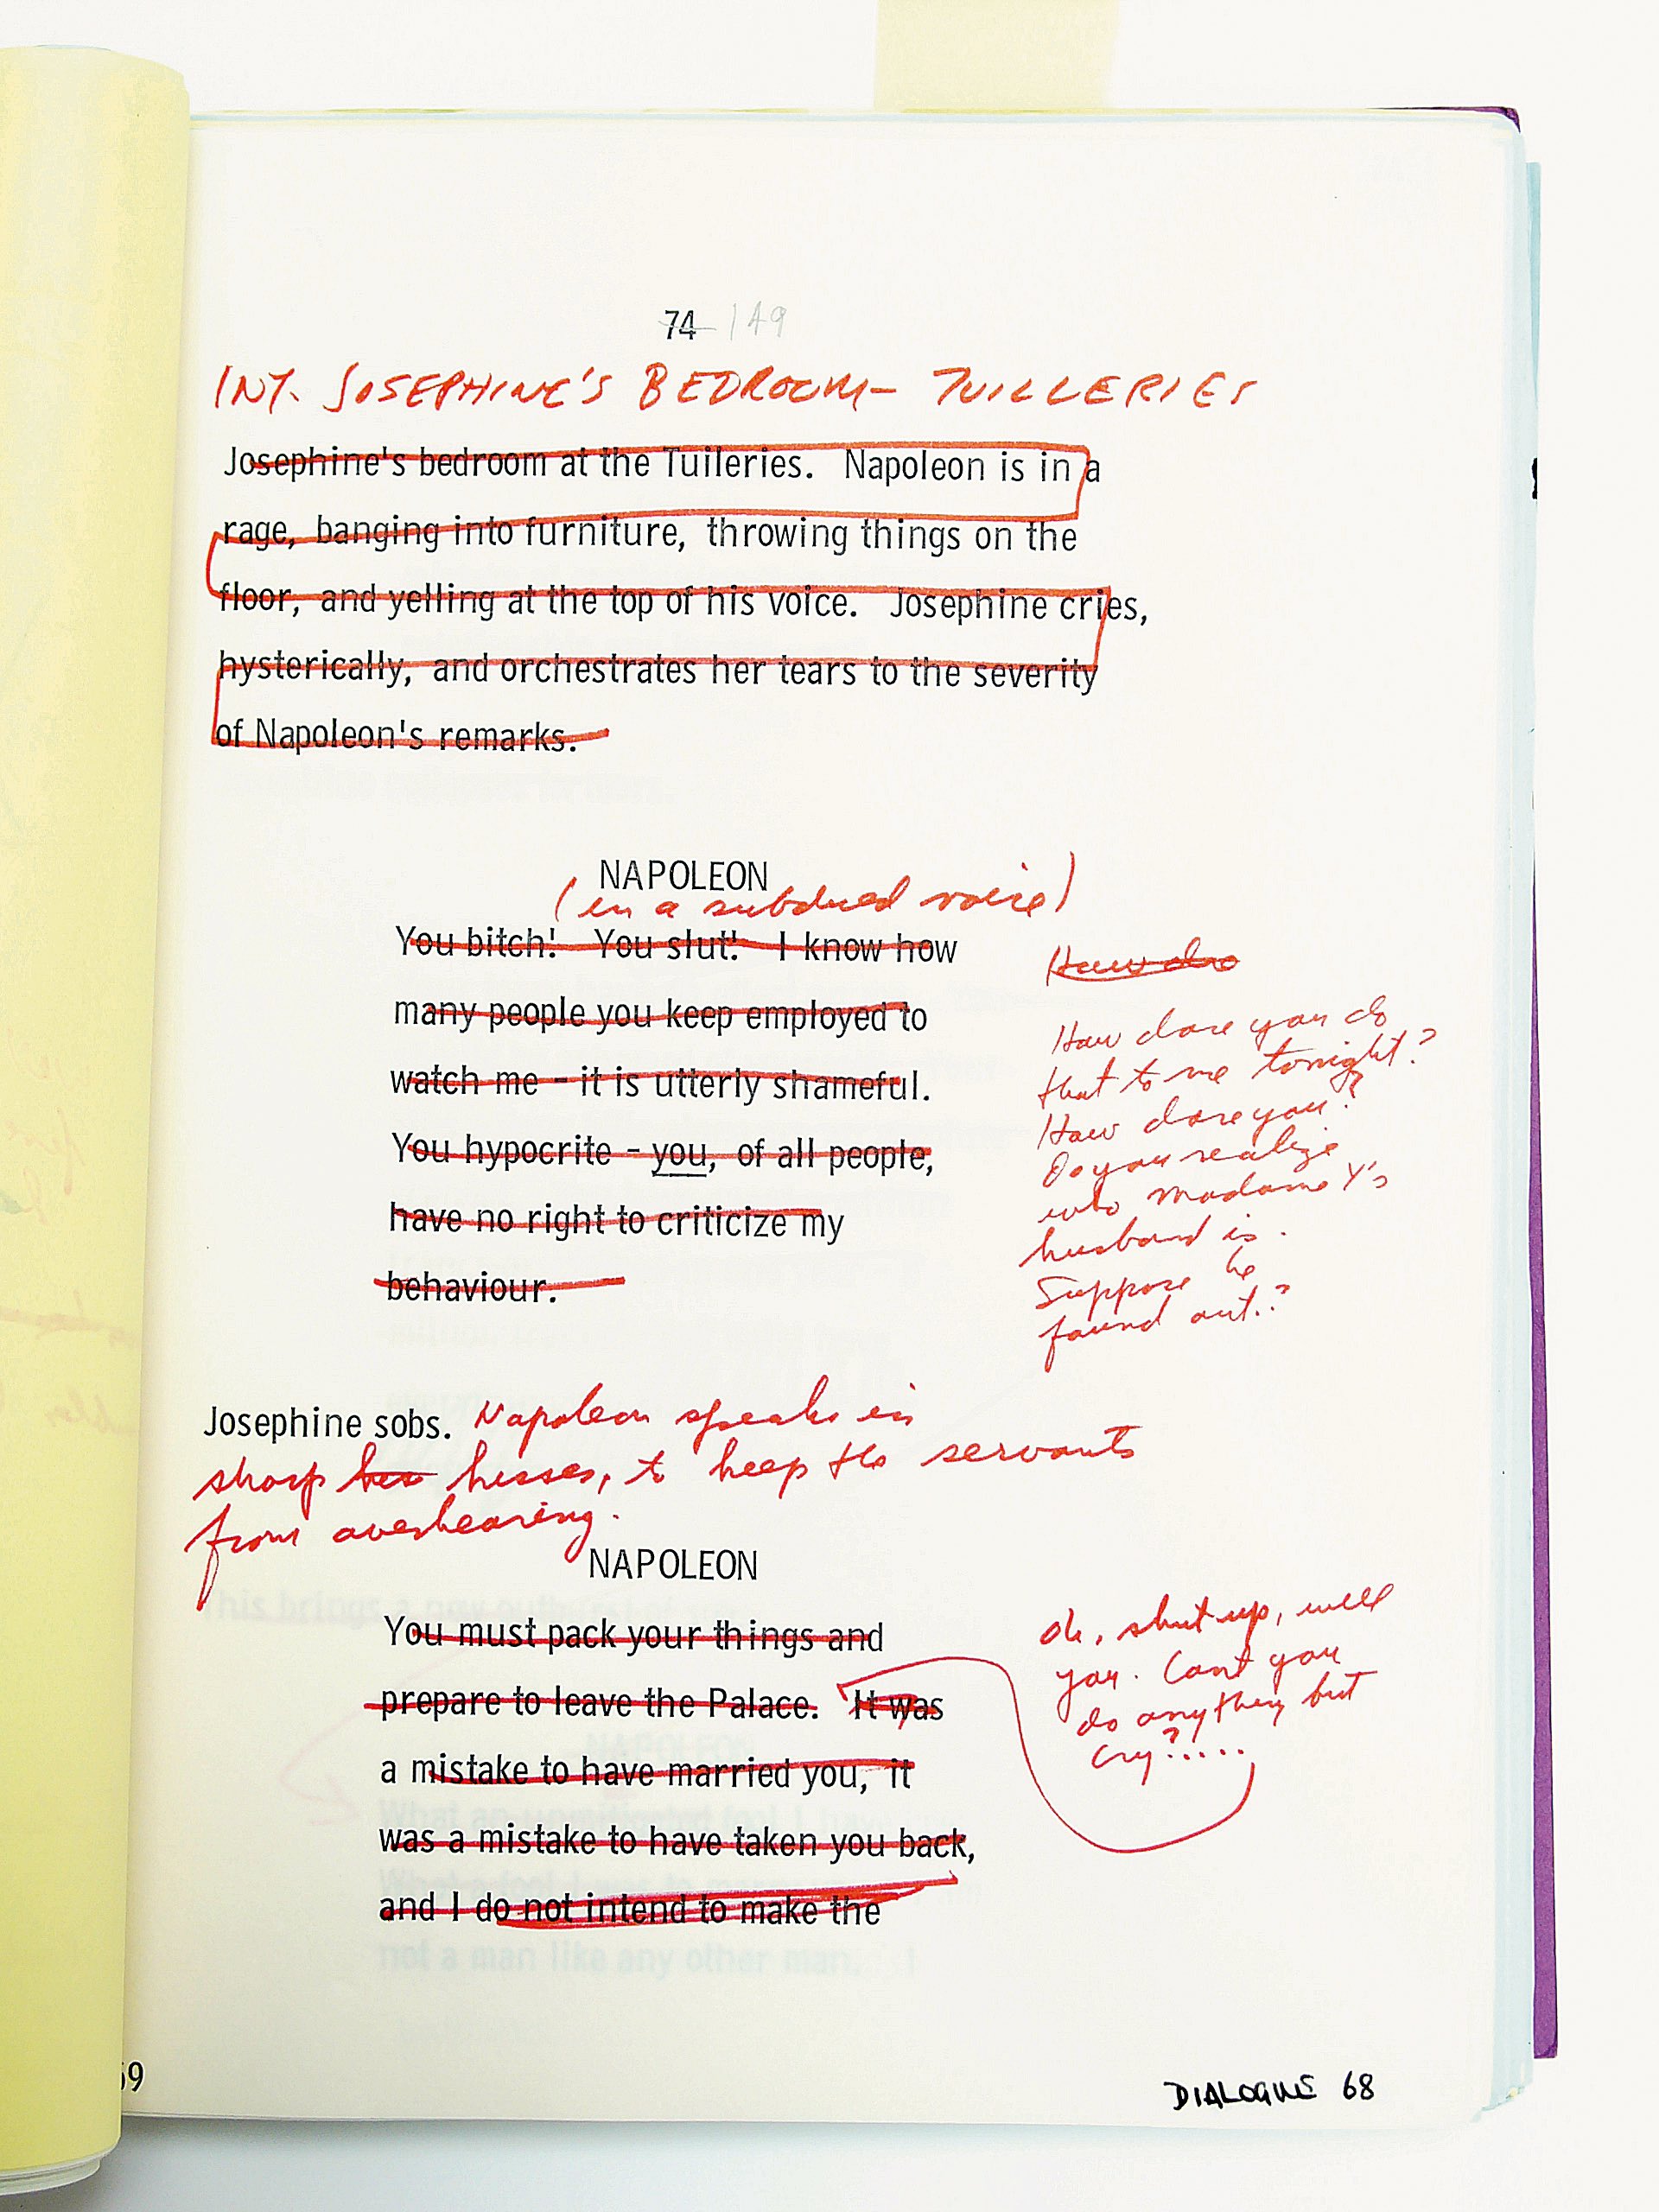 74 149
INT. JOSEPHINE'S BEDROOM - TUILLERIES
Josephine's bedroom at the Tuileries. Napoleon is in a
rage, banging into furniture, throwing things on the
floor, and yelling at the top of his voice. Josephine cries,
hysterically, and orchestrates her tears to the severity
of Napoleon's remarks.
NAPOLEON
(in a subdued voice)
You bitch! You slut! I know how
many people you keep employed to
watch me - it is utterly shameful.
You hypocrite - you, of all people,
have no right to criticize my
behaviour.
How da
How dare you do
that to me tonight?
How dare you?
Do you realize
who Madame Y's
husband is.
Suppose he
found out..?
Josephine sobs. Napoleon speaks in
sharp hisses, to keep the servants
from overhearing.
NAPOLEON
You must pack your things and
prepare to leave the Palace. It was
a mistake to have married you, it
was a mistake to have taken you back,
and I do not intend to make the
Oh, shut up, will
you. Cant you
do anything but
cry?.....
This brings a new
NAPOLEON
not a man like any other man. I
69
DIALOGUE 68